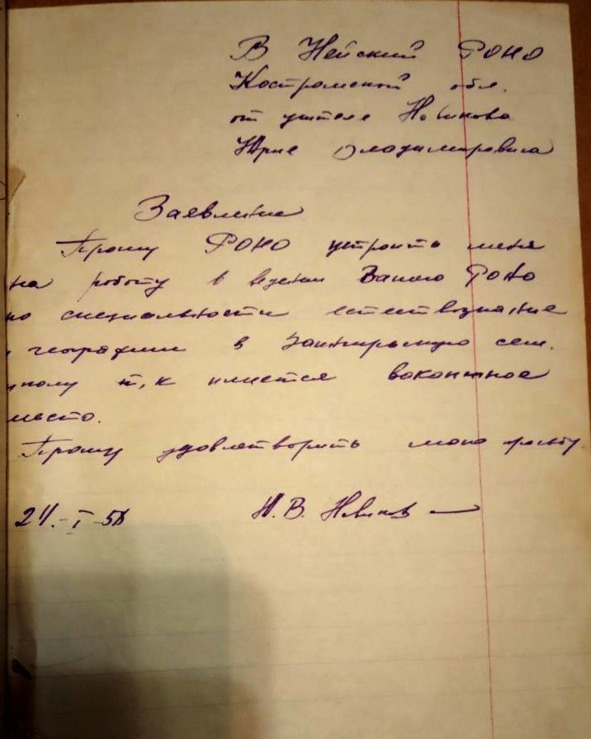 В Нейский РОНО
Костромской обл.
от учителя Новикова
Юрие Владимировича
Заявление
Прошу РОНО устроить меня
на работу в ведении Вашего РОНО
по специальности естествознание
и географии в сем.
школу т.к имеется вокантное
место.
Прошу удовлетворить мою просьбу
24.-I-58 Ю.В. Новиков